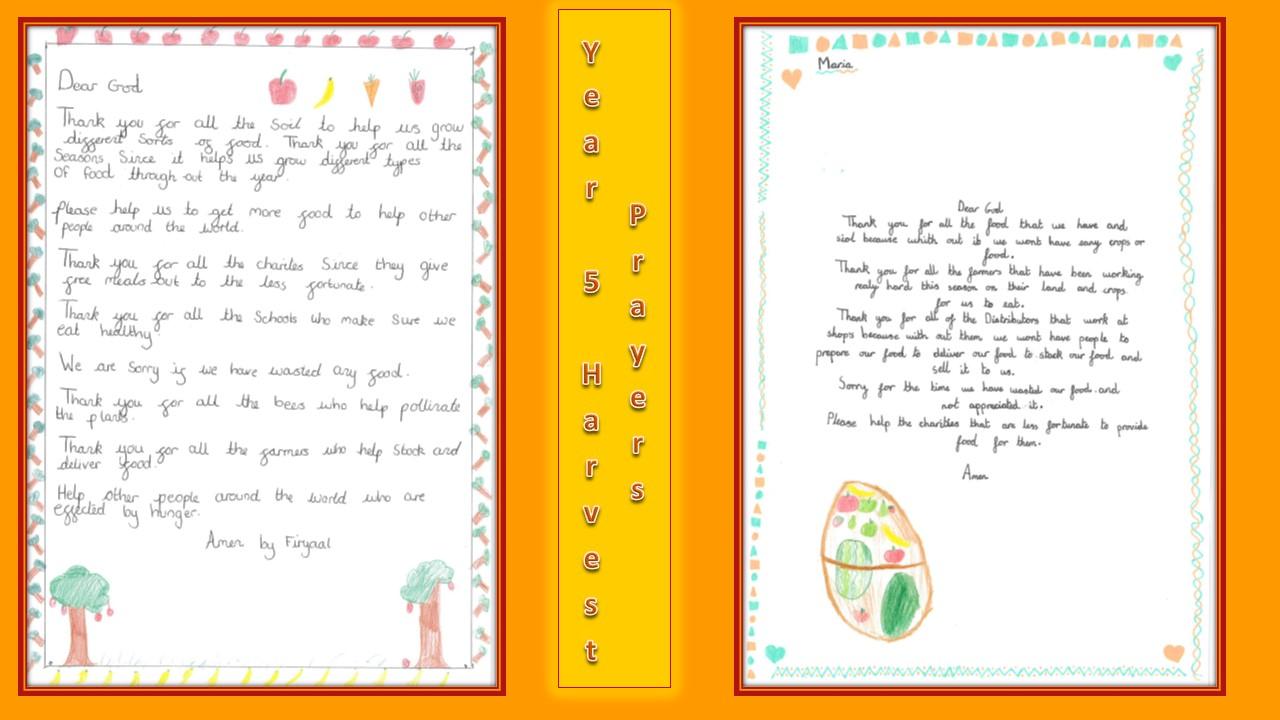 Dear God
Thank you for all the Soil to help us grow
different Sorts of food. Thank you for all the
Seasons Since it helps us grow different types
of food through out the year.
please help us to get more food to help other
people around the world.
Thank you for all the charites Since they give
free meals out to the less fortunate.
Thank you for all the Schools who make sure we
eat healthy.
We are Sorry if we have wasted any food.
Thank you for all the bees who help pollinate
the plants.
Thank you for all the farmers who help Stock and
deliver food.
Help other people around the world who are
effected by hunger.
Amen by Firyaal
Year 5 Harvest
Prayers
Maria
Dear God
Thank you for all the food that we have and
siol because whith out it we wont have eany crops or
food.
Thank you for all the farmers that have been working
realy hard this season on their land and crops
for us to eat.
Thank you for all of the Distributors that work at
shops because with out them we wont have people to
prepare our food to deliver our food to stock our food and
sell it to us.
Sorry for the time we have wasted our food and
not appreciated it.
Please help the charities that are less fortunate to provide
food for them.
Amen